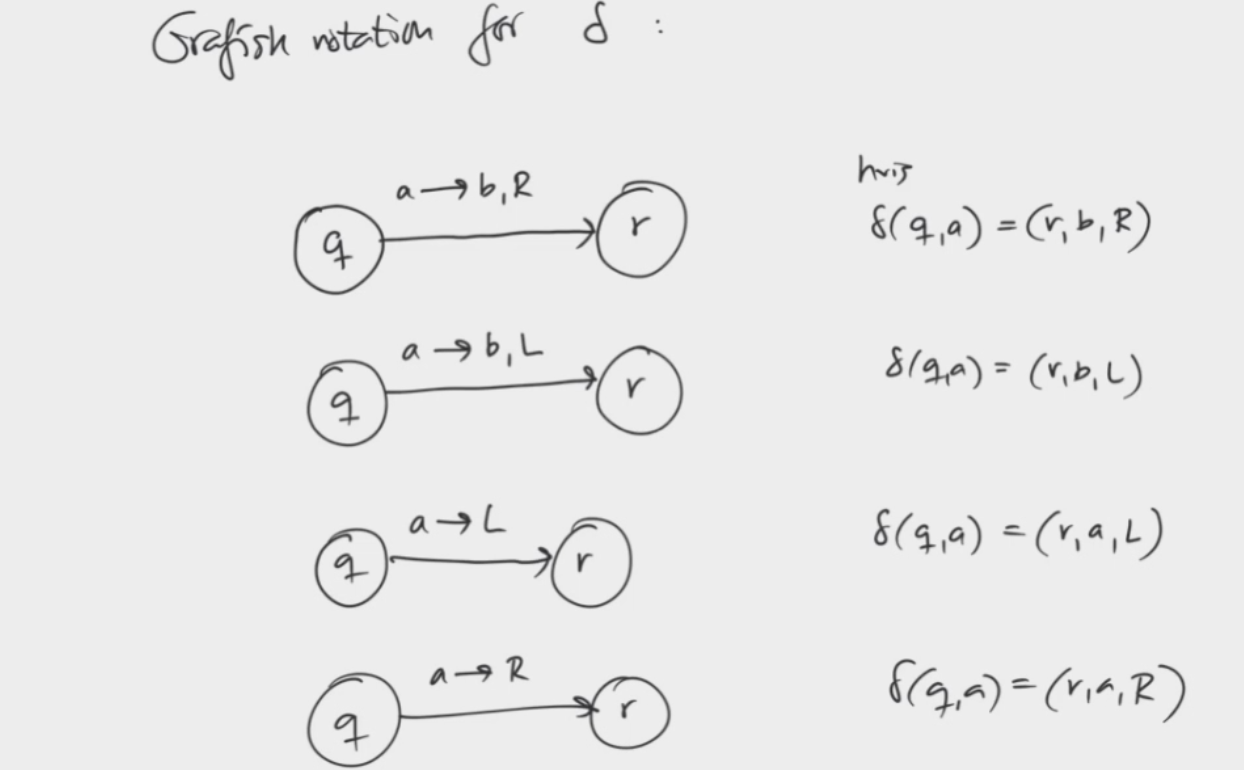 Grafisk notation for δ :
hvis
a → b, R
q r δ(q,a) = (r, b, R)
a → b, L
q r δ(q,a) = (r, b, L)
a → L
q r δ(q,a) = (r, a, L)
a → R
q r δ(q,a) = (r, a, R)